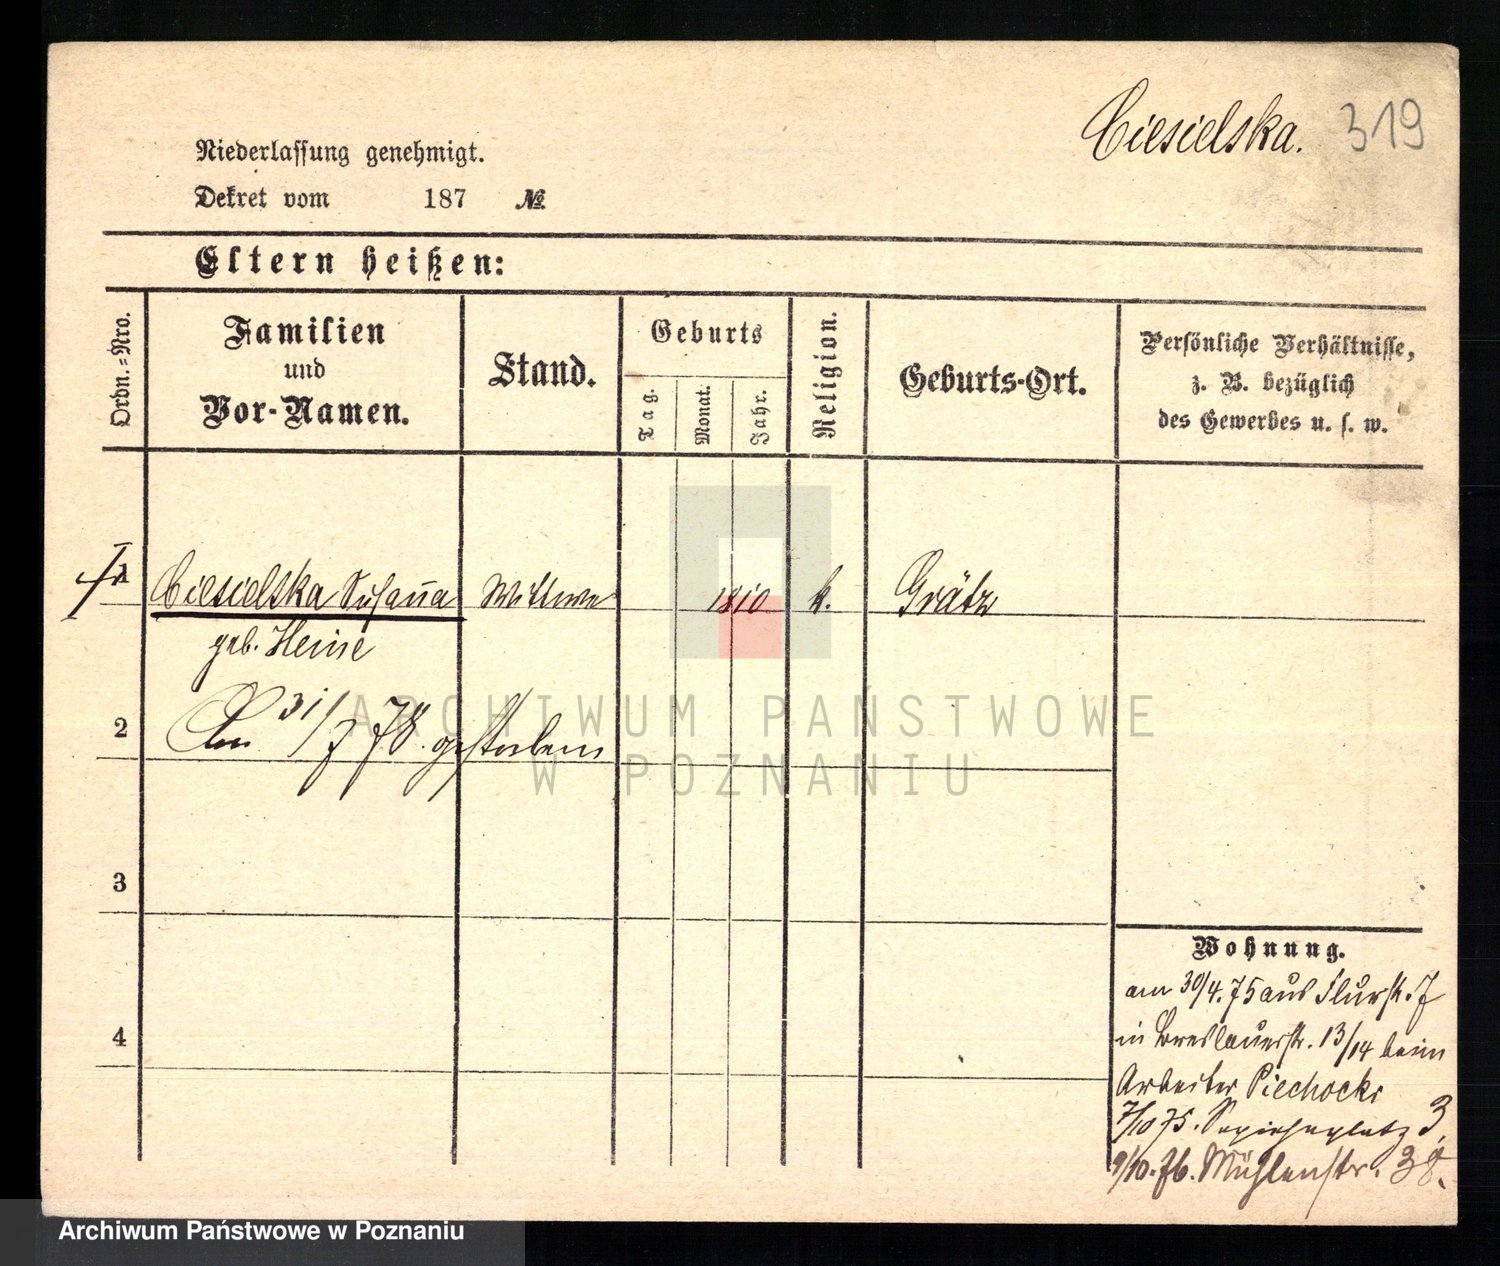 Ciesielska. 319
Niederlassung genehmigt.
Dekret vom 187 №
Eltern heißen:
Ordn.-Nro.
Familien
und
Vor-Namen.
Stand.
Geburts
Tag.
Monat.
Jahr.
Religion.
Geburts-Ort.
Persönliche Verhältnisse,
z. B. bezüglich
des Gewerbes u. s. w.
1 Ciesielska Susanna Wittwe 1810 k. Grätz
geb. Heine
2 Am 31/7 78. gestorben
3
4
Wohnung.
am 30/4. 75 aus Flurstr. 7
in Breslauerstr. 13/14 beim
Arbeiter Piechocki
7/10 75. Sapiehaplatz 3,
9/10. 76. Mühlenstr. 38.
ARCHIWUM PAŃSTWOWE
W POZNANIU
Archiwum Państwowe w Poznaniu